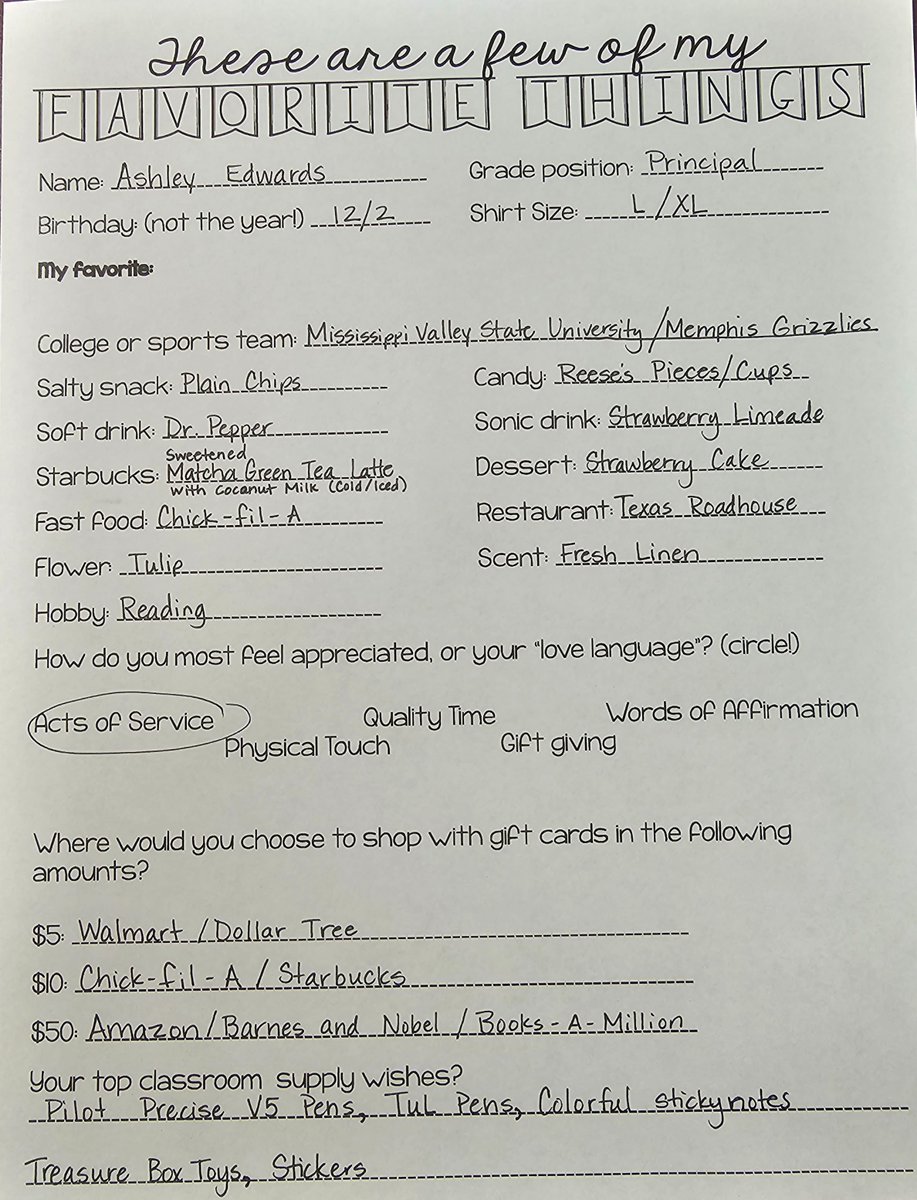 These are a few of my
FAVORITE THINGS
Name: Ashley Edwards Grade position: Principal
Birthday: (not the year!) 12/2 Shirt Size: L/XL
My favorite:
College or sports team: Mississippi Valley State University/Memphis Grizzlies
Salty snack: Plain Chips Candy: Reese's Pieces/Cups
Soft drink: Dr. Pepper Sonic drink: Strawberry Limeade
Sweetened
Starbucks: Matcha Green Tea Latte Dessert: Strawberry Cake
with Coconut Milk (Cold/Iced)
Fast food: Chick-fil-A Restaurant: Texas Roadhouse
Flower: Tulip Scent: Fresh Linen
Hobby: Reading
How do you most feel appreciated, or your "love language"? (circle!)
Acts of Service Quality Time Words of Affirmation
Physical Touch Gift giving
Where would you choose to shop with gift cards in the following
amounts?
$5: Walmart/Dollar Tree
$10: Chick-fil-A/Starbucks
$50: Amazon/Barnes and Nobel/Books-A-Million
Your top classroom supply wishes?
Pilot Precise V5 Pens, TuL Pens, Colorful stickynotes
Treasure Box Toys, Stickers